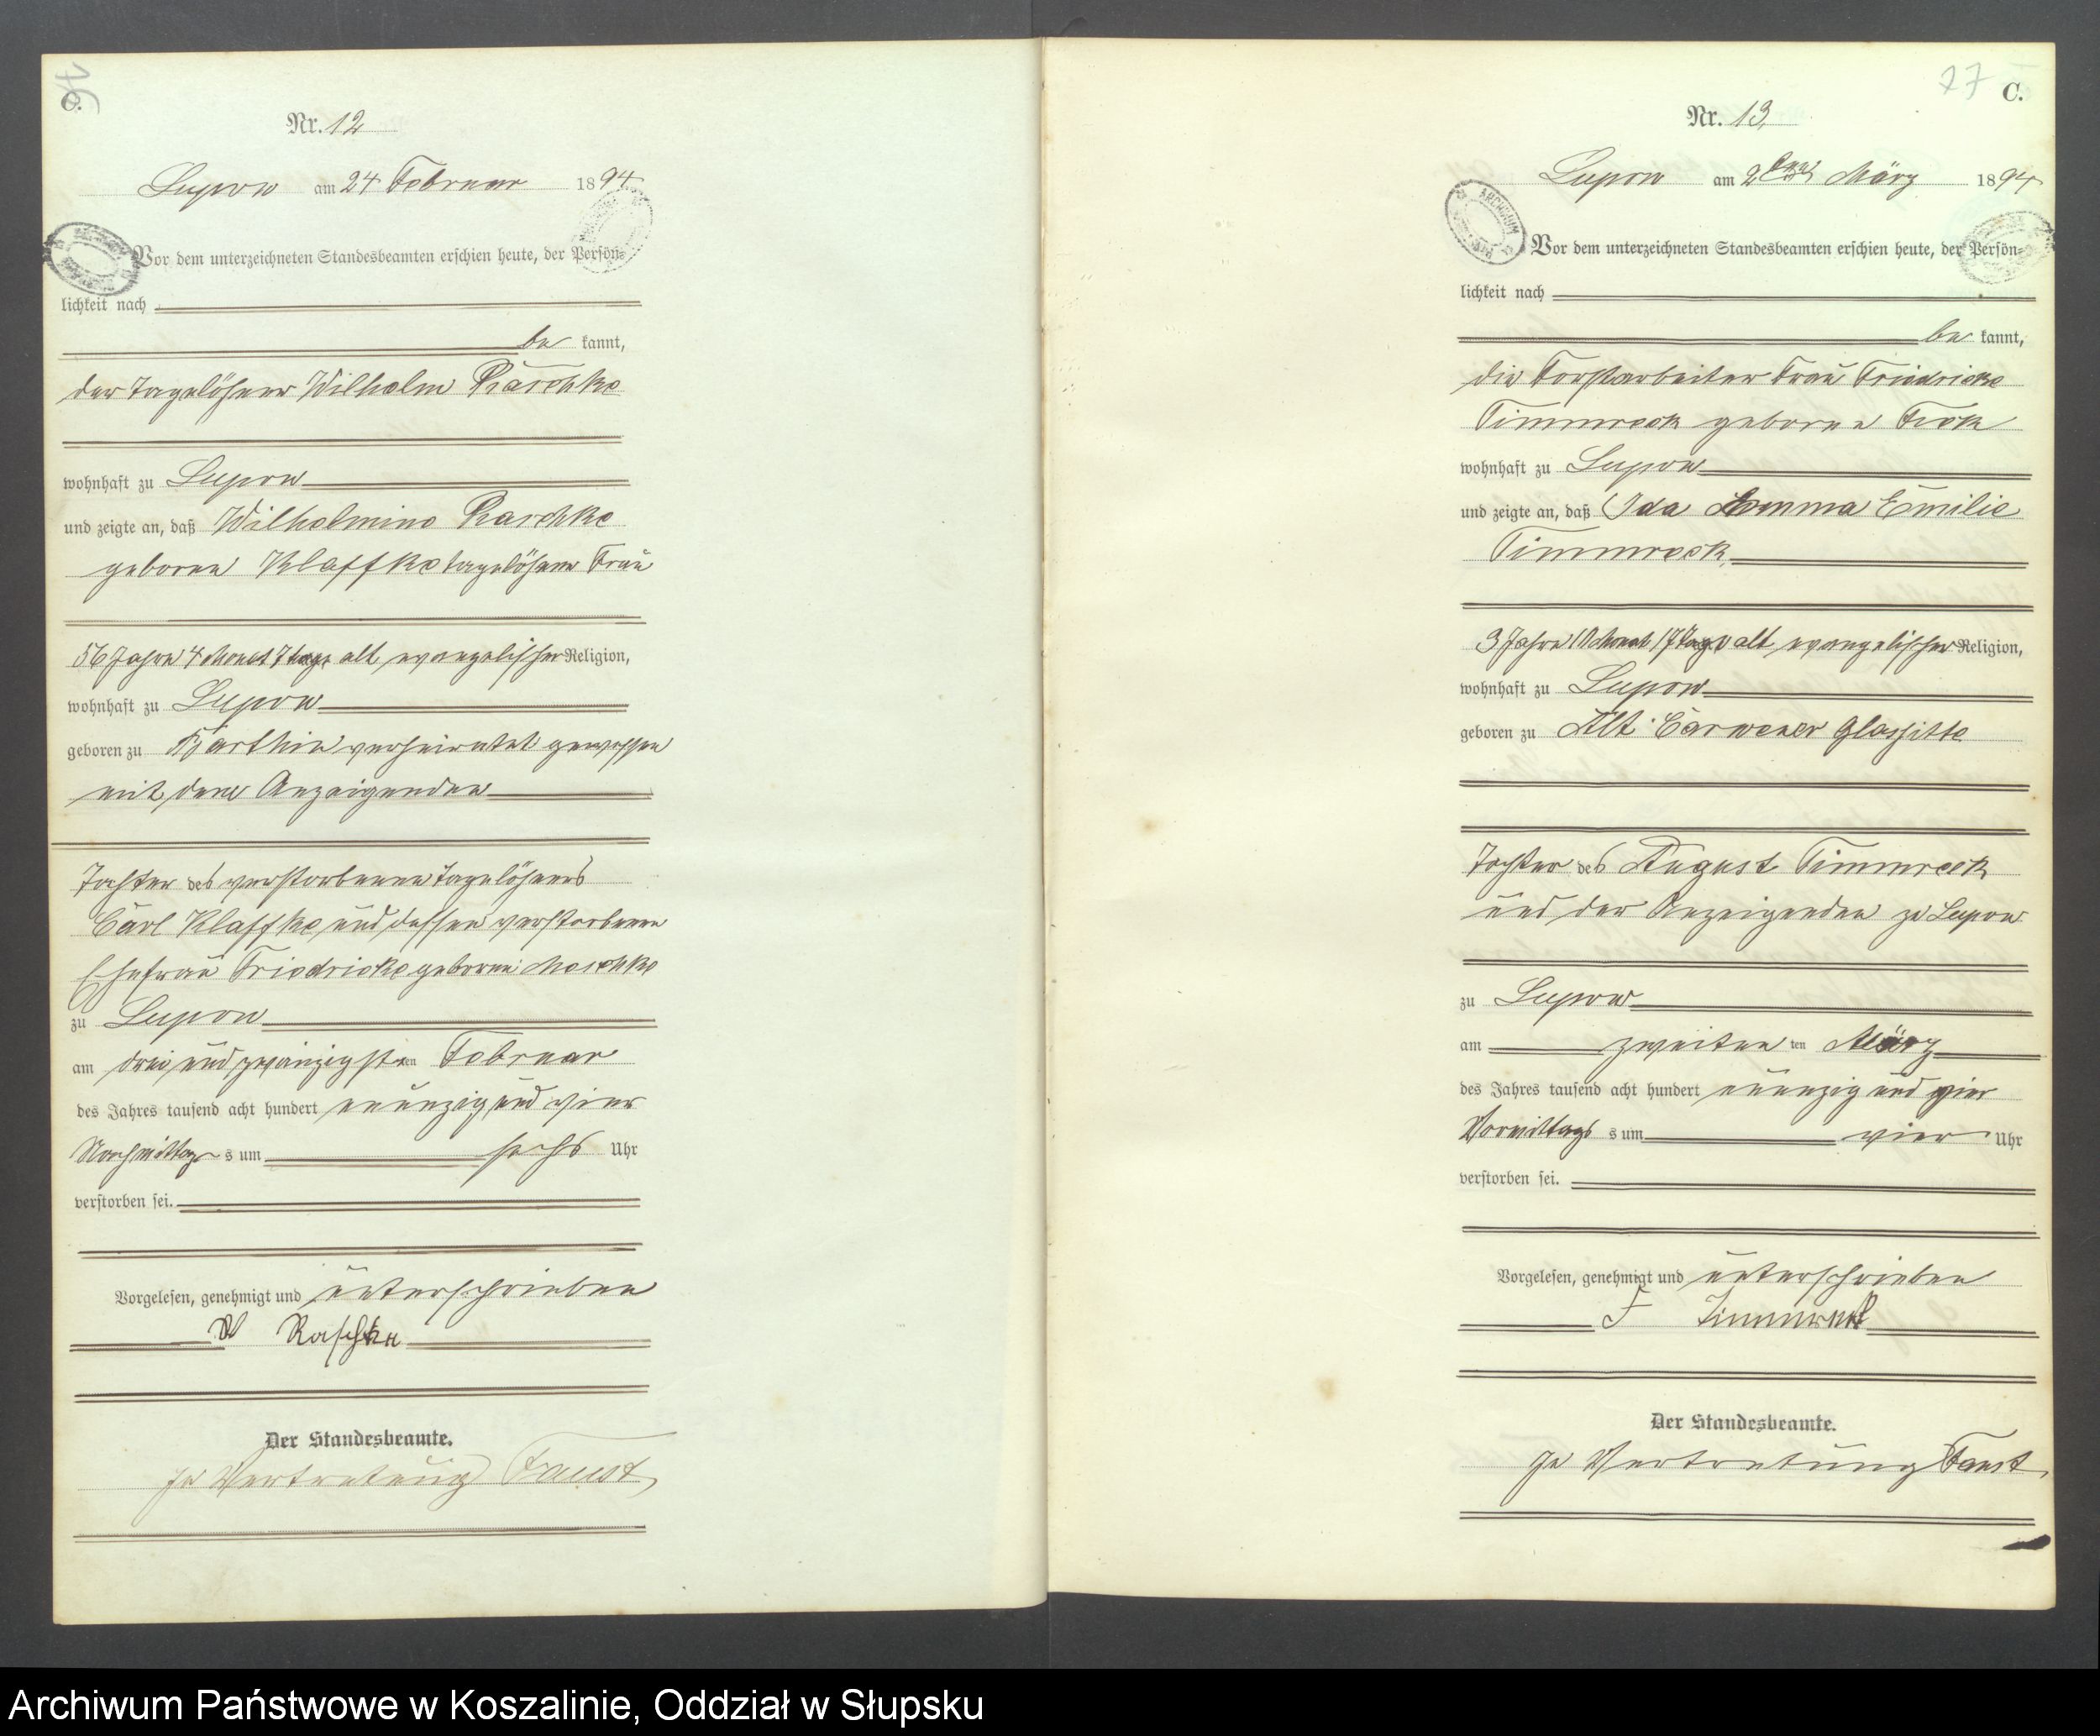 C.
Nr. 12
Lupow am 24 Februar 1894.
Vor dem unterzeichneten Standesbeamten erschien heute, der Persön-
lichkeit nach
be kannt,
der Tagelöhner Wilhelm Raschke
wohnhaft zu Lupow
und zeigte an, daß Wilhelmine Raschke
geborene Klaffke tagelöhner Frau
56 Jahre 4 Monat 7 tage alt, evangelischer Religion,
wohnhaft zu Lupow
geboren zu Barthin verheirathet gewessen
mit dem Anzeigenden
Tochter des verstorbenen Tagelöhners
Carl Klaffke und dessen verstorbenen
Ehefrau Friedricke geborene Maschke
zu Lupow
am drei und zwanzigsten ten Februar
des Jahres tausend acht hundert neunzig und vier
Nachmittag s um sechs Uhr
verstorben sei.
Vorgelesen, genehmigt und unterschrieben
W Raschke
Der Standesbeamte.
In Vertretung Faust
27 C.
Nr. 13.
Lupow am 2ten März 1894
Vor dem unterzeichneten Standesbeamten erschien heute, der Persön-
lichkeit nach
be kannt,
die Forstarbeiter Frau Friedricke
Timmreck geborene Fick
wohnhaft zu Lupow
und zeigte an, daß Ida Emma Emilie
Timmreck,
3 Jahre 10 Monat 17 Tage alt, evangelischer Religion,
wohnhaft zu Lupow
geboren zu Alt Carwener Glashitte
Tochter des August Timmreck
und der Anzeigenden zu Lupow
zu Lupow
am zweiten ten März
des Jahres tausend acht hundert neunzig und vier
Vormittags s um vier Uhr
verstorben sei.
Vorgelesen, genehmigt und unterschrieben
F Timmreck
Der Standesbeamte.
In Vertretung Faust
Archiwum Państwowe w Koszalinie, Oddział w Słupsku